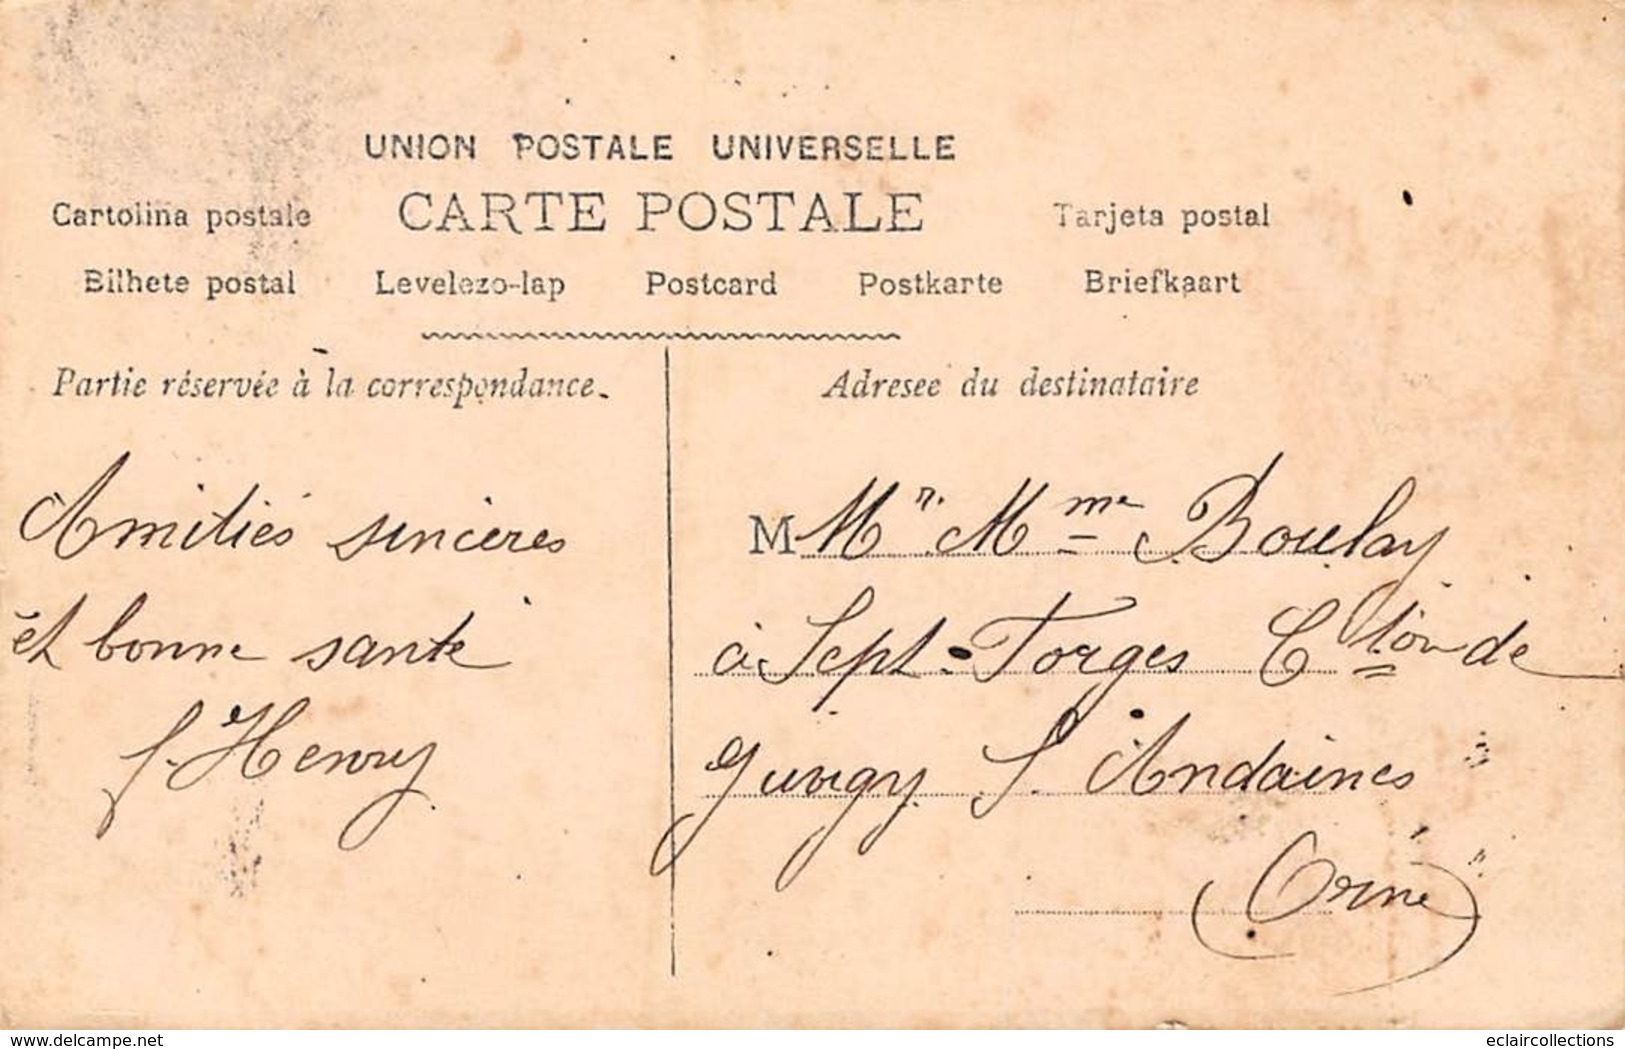 UNION POSTALE UNIVERSELLE
Cartolina postale CARTE POSTALE Tarjeta postal
Bilhete postal Levelezo-lap Postcard Postkarte Briefkaart
Partie réservée à la correspondance.
Amitiés sincères
et bonne santé
f. Henry
Adresee du destinataire
M Mr. Mme Boulay
à Sept-Forges Cton de
Juvigy S. Andaines
Orne
delcampe.net
eclaircollections